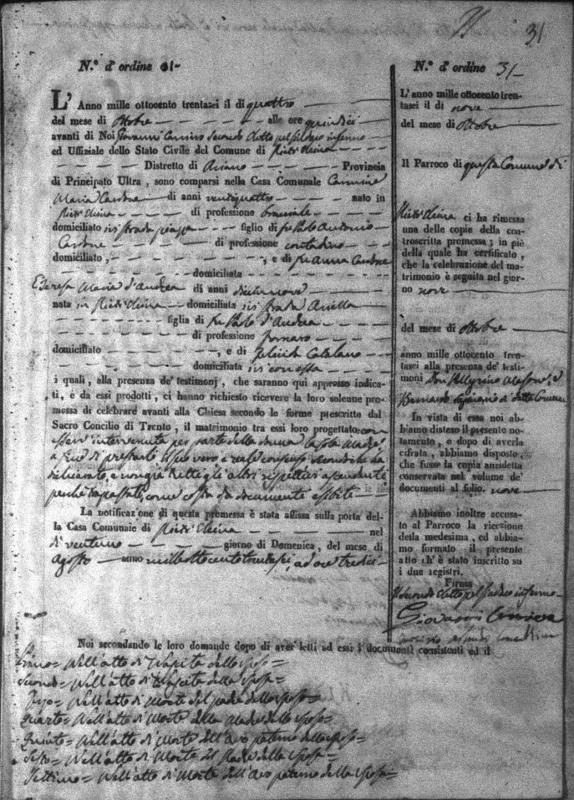 31
N.° d'ordine 31
L' Anno mille ottocento trentasei il dì quattro
del mese di Ottobre alle ore quindici
avanti di Noi Giovanni secondo eletto pel Sindaco infermo
ed Uffiziale dello Stato Civile del Comune di
Distretto di Ariano Provincia
di Principato Ultra, sono comparsi nella Casa Comunale Carmine
Maria Cardone di anni ventiquattro nato in
di professione bracciale
domiciliato ivi strada piazza figlio di fu Antonio
Cardone di professione contadino
domiciliato, , e di fu Anna Cardone
domiciliata
E Teresa Maria d'Andrea di anni diecinnove
nata in domiciliata ivi strada
figlia di fu Paolo d'Andrea
di professione fornaro
domiciliato , e di Felicia Catalano
domiciliata ivi con essa
i quali, alla presenza de' testimonj, che saranno qui appresso indica-
ti, e da essi prodotti, ci hanno richiesto ricevere la loro solenne pro-
messa di celebrare avanti alla Chiesa secondo le forme prescritte dal
Sacro Concilio di Trento, il matrimonio tra essi loro progettato con
esservi intervenuta per parte della donna la sola Madre
a fine di prestare il suo vero e reale consenso siccome lo ha
dichiarato, e non già gli altri rispettivi ascendenti
perché trapassati, come costa da documenti esibiti
La notificazione di questa promessa è stata affissa sulla porta del-
la Casa Comunale di nel
dì ventuno giorno di Domenica, del mese di
Agosto anno milleottocentotrentasei ad ore tredici
Noi secondando le loro domande dopo di aver letti ad essi i documenti consistenti ed il
Primo = Nell'atto di Nascita dello sposo =
Secondo = Nell'atto di Nascita della sposa =
Terzo = Nell'atto di Morte del padre dello sposo =
Quarto = Nell'atto di Morte della Madre dello sposo =
Quinto = Nell'atto di Morte dell'Avo paterno dello sposo =
Sesto = Nell'atto di Morte del Padre della sposa =
Settimo = Nell'atto di Morte dell'Avo paterno della sposa =
N.° d'ordine 31
L' anno mille ottocento tren-
tasei il dì nove
del mese di Ottobre
Il Parroco di questa Comune di
ci ha rimessa
una delle copie della con-
troscritta promessa; in piè
della quale ha certificato,
che la celebrazione del ma-
trimonio è seguita nel gior-
no nove
del mese di Ottobre
anno mille ottocento tren-
tasei alla presenza de' testi-
monj Don Pellegrino
Bernardo di detta Comune
In vista di essa noi ab-
biamo disteso il presente no-
tamento, e dopo di averla
cifrata, abbiamo disposto,
che fusse la copia anzidetta
conservata nel volume de'
documenti al folio. nove
Abbiamo inoltre accusa-
to al Parroco la ricezione
della medesima, ed abbia-
mo formato il presente
atto ch' è stato inscritto su
i due registri.
Firma
Il secondo eletto pel Sindaco infermo
Giovanni